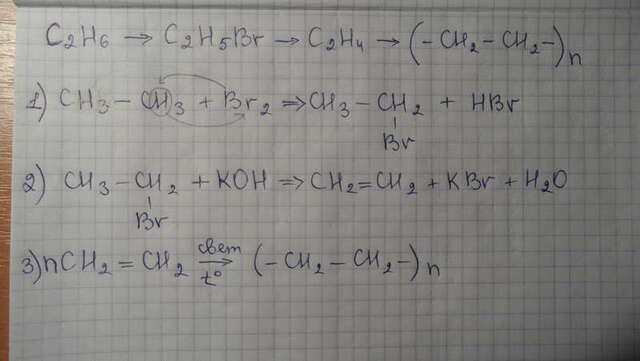 C2H6 → C2H5Br → C2H4 → (-CH2-CH2-)n
1) CH3-CH3 + Br2 ⇒ CH3-CH2 + HBr
Br
2) CH3-CH2 + KOH ⇒ CH2=CH2 + KBr + H2O
Br
3) nCH2=CH2 свет → t° (-CH2-CH2-)n